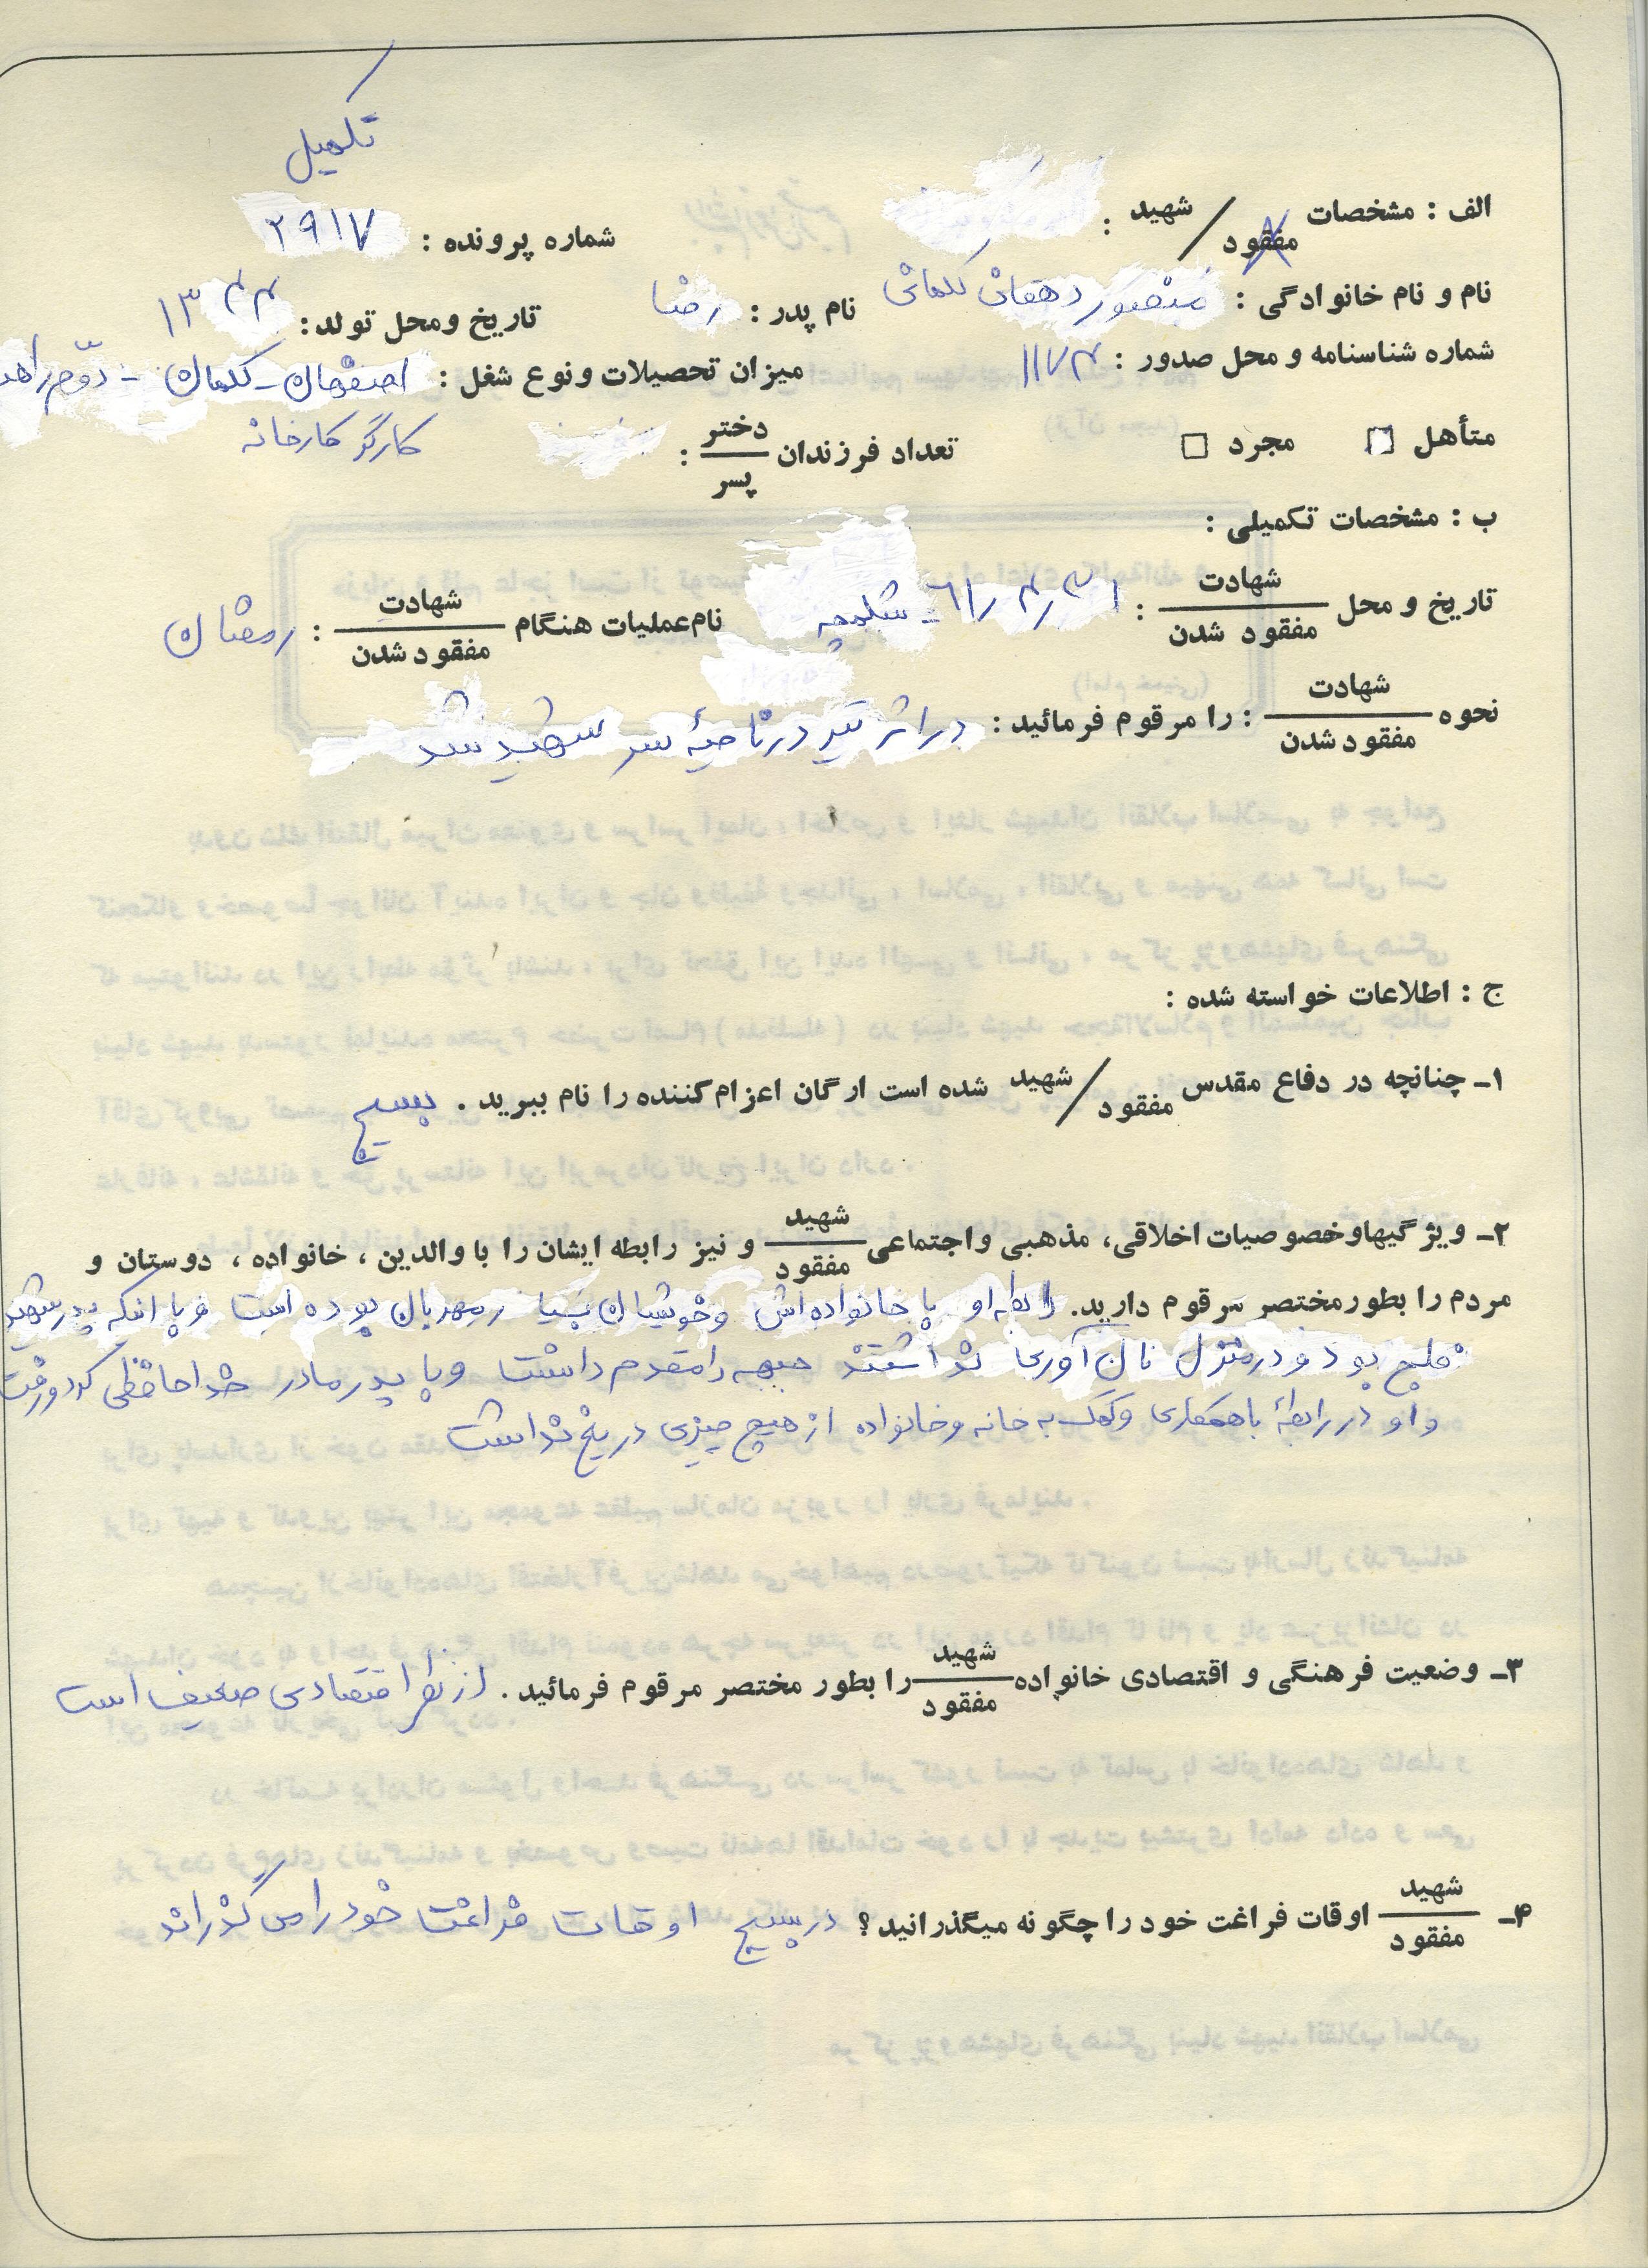 تکمیل
الف : مشخصات شهید / مفقود :
شماره پرونده : ۲۹۱۷
نام و نام خانوادگی : منصور دهقانی کلمانی نام پدر : رضا تاریخ ومحل تولد : ۱۳۴۴
شماره شناسنامه و محل صدور : ۱۱۷۴ میزان تحصیلات و نوع شغل : اصفهان - کلمان - دوم راهن
کارگر کارخانه
متأهل □ مجرد □ تعداد فرزندان دختر / پسر :
ب : مشخصات تکمیلی :
تاریخ و محل شهادت / مفقود شدن : ۶۱٫۴٫۳۱ - شلمچه نام عملیات هنگام شهادت / مفقود شدن : رمضان
نحوه شهادت / مفقود شدن : را مرقوم فرمائید : در اثر تیر در ناحیهٔ سر شهید شد
ج : اطلاعات خواسته شده :
۱ـ چنانچه در دفاع مقدس شهید / مفقود شده است ارگان اعزام کننده را نام ببرید . بسیج
۲ـ ویژگیهاوخصوصیات اخلاقی، مذهبی واجتماعی شهید / مفقود و نیز رابطه ایشان را با والدین ، خانواده ، دوستان و
مردم را بطورمختصر مرقوم دارید. رابطه او با خانواده اش وخویشان بسیار مهربان بوده است و با اینکه پدر شهید
فلج بود و در منزل نان آوری نداشتند جبهه را مقدم داشت و با پدر مادر خداحافظی کرد و رفت
و او در رابطهٔ با همکاری وکمک به خانه و خانواده از هیچ چیزی دریغ نداشت
۳ـ وضعیت فرهنگی و اقتصادی خانواده شهید / مفقود را بطور مختصر مرقوم فرمائید . از نظر اقتصادی ضعیف است
۴ـ شهید / مفقود اوقات فراغت خود را چگونه میگذرانید؟ در بسیج اوقات فراغت خود را می گذراند